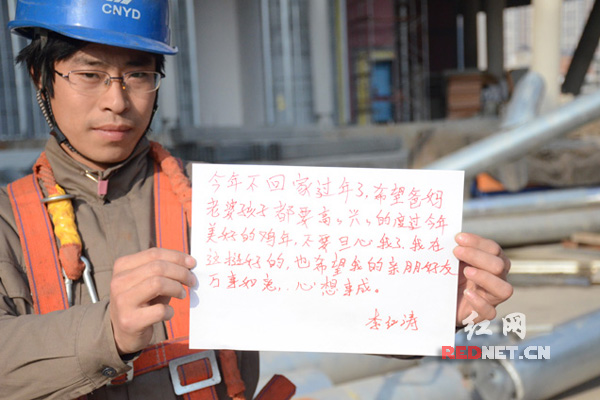 CNYD
今年不回家过年了,希望爸妈
老婆孩子都要高,兴,的度过今年
美好的鸡年,不要旦心我了,我在
这挺好的,也希望我的亲朋好友
万事如意,心想事成。
李仁涛
红网
REDNET.CN